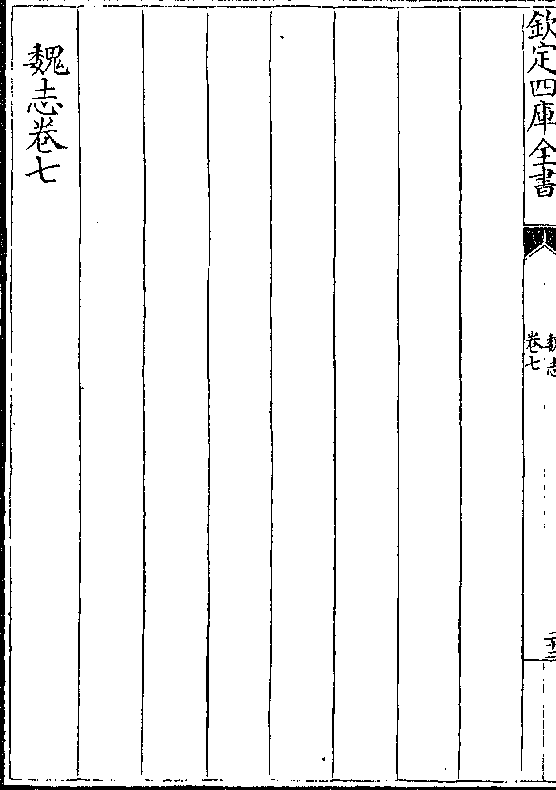 欽定四庫全書
魏志
卷七
魏志卷七